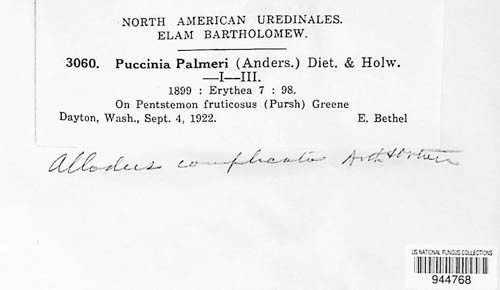 NORTH AMERICAN UREDINALES.
ELAM BARTHOLOMEW.
3060. Puccinia Palmeri (Anders.) Diet. & Holw.
—I—III.
1899 : Erythea 7 : 98.
On Pentstemon fruticosus (Pursh) Greene
Dayton, Wash., Sept. 4, 1922. E. Bethel
Allodus complicata Arth & Orton
US NATIONAL FUNGUS COLLECTIONS
944768